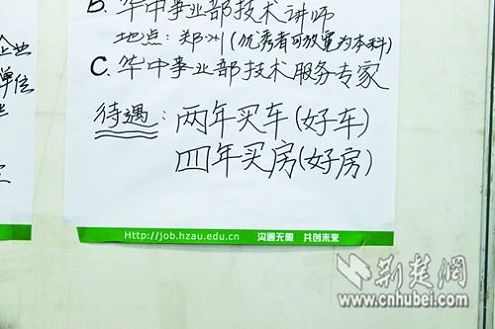 B. 华中事业部技术讲师
地点: 郑州(优秀者可放宽为本科)
C. 华中事业部技术服务专家
待遇: 两年买车(好车)
四年买房(好房)
企业
单位
Http://job.hzau.edu.cn 沟通无限 共创未来
荆楚网
www.cnhubei.com